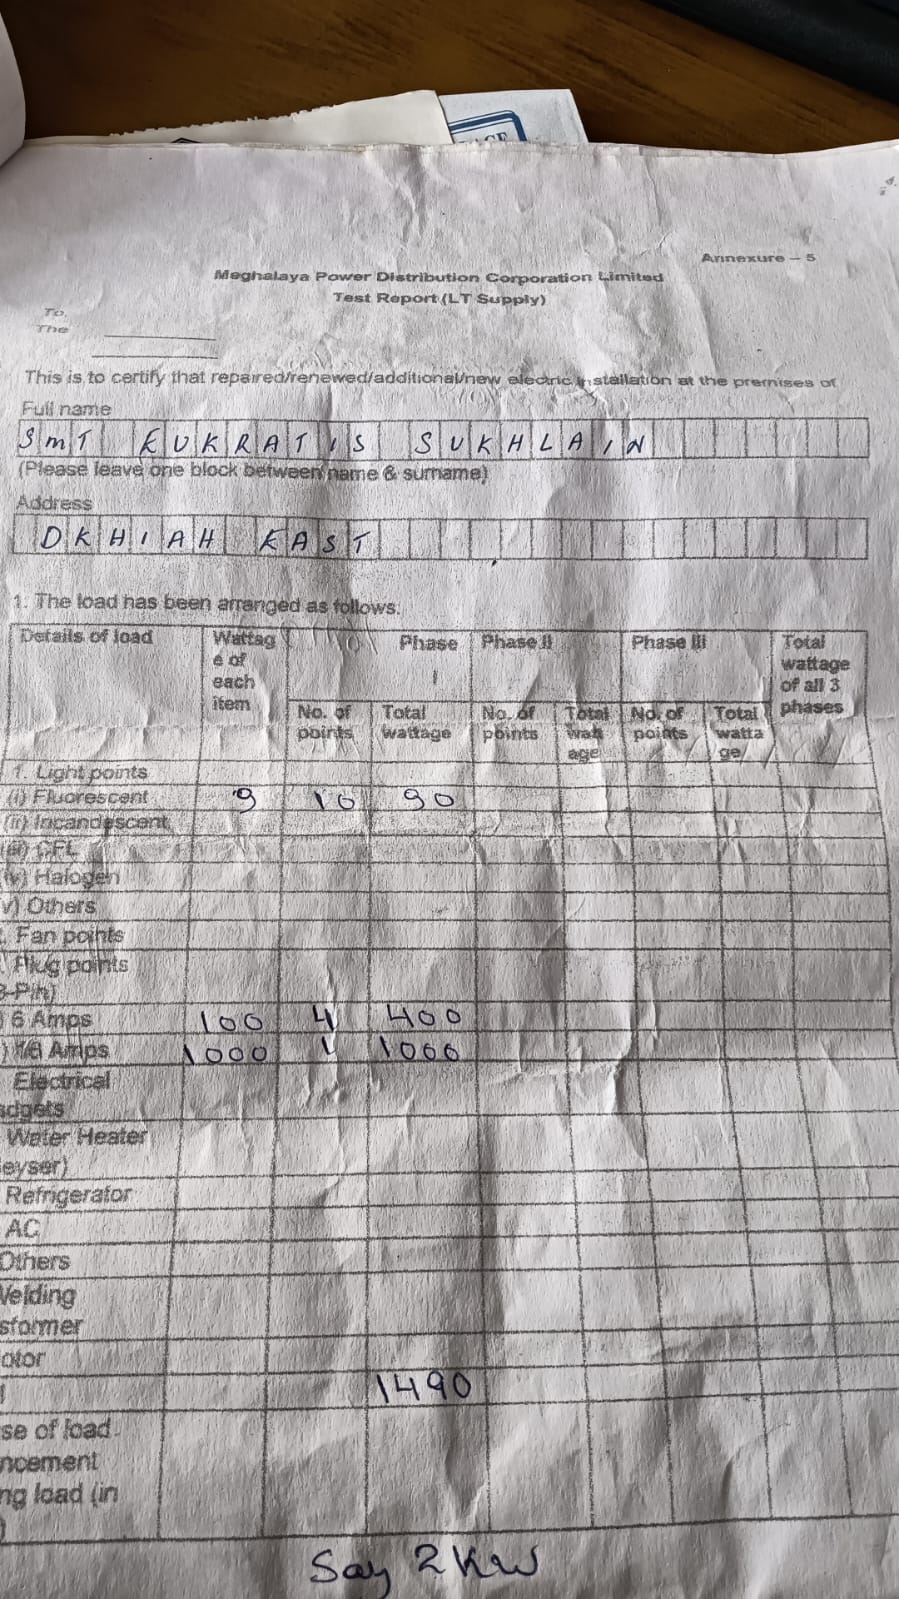 Annexure - 5
Meghalaya Power Distribution Corporation Limited
Test Report (LT Supply)
To,
The
This is to certify that repaired/renewed/additional/new electric installation at the premises of
Full name
SMT EUKRATIS SUKHLAIN
(Please leave one block between name & surname)
Address
DKHIAH EAST
1. The load has been arranged as follows.
Details of load Wattag e of each item Phase I Phase II Phase III Total wattage of all 3 phases
No. of points Total wattage No. of points Total watt age No. of points Total watta ge
1. Light points
(i) Fluorescent 9 10 90
(ii) Incandescent
CFL
Halogen
v) Others
Fan points
Plug points
3-Pin)
6 Amps 100 4 400
Amps 1000 1 1000
Electrical
adgets
Water Heater
eyser)
Refrigerator
AC
Others
Welding
sformer
otor
1490
se of load
ncement
ng load (in
)
Say 2 KW